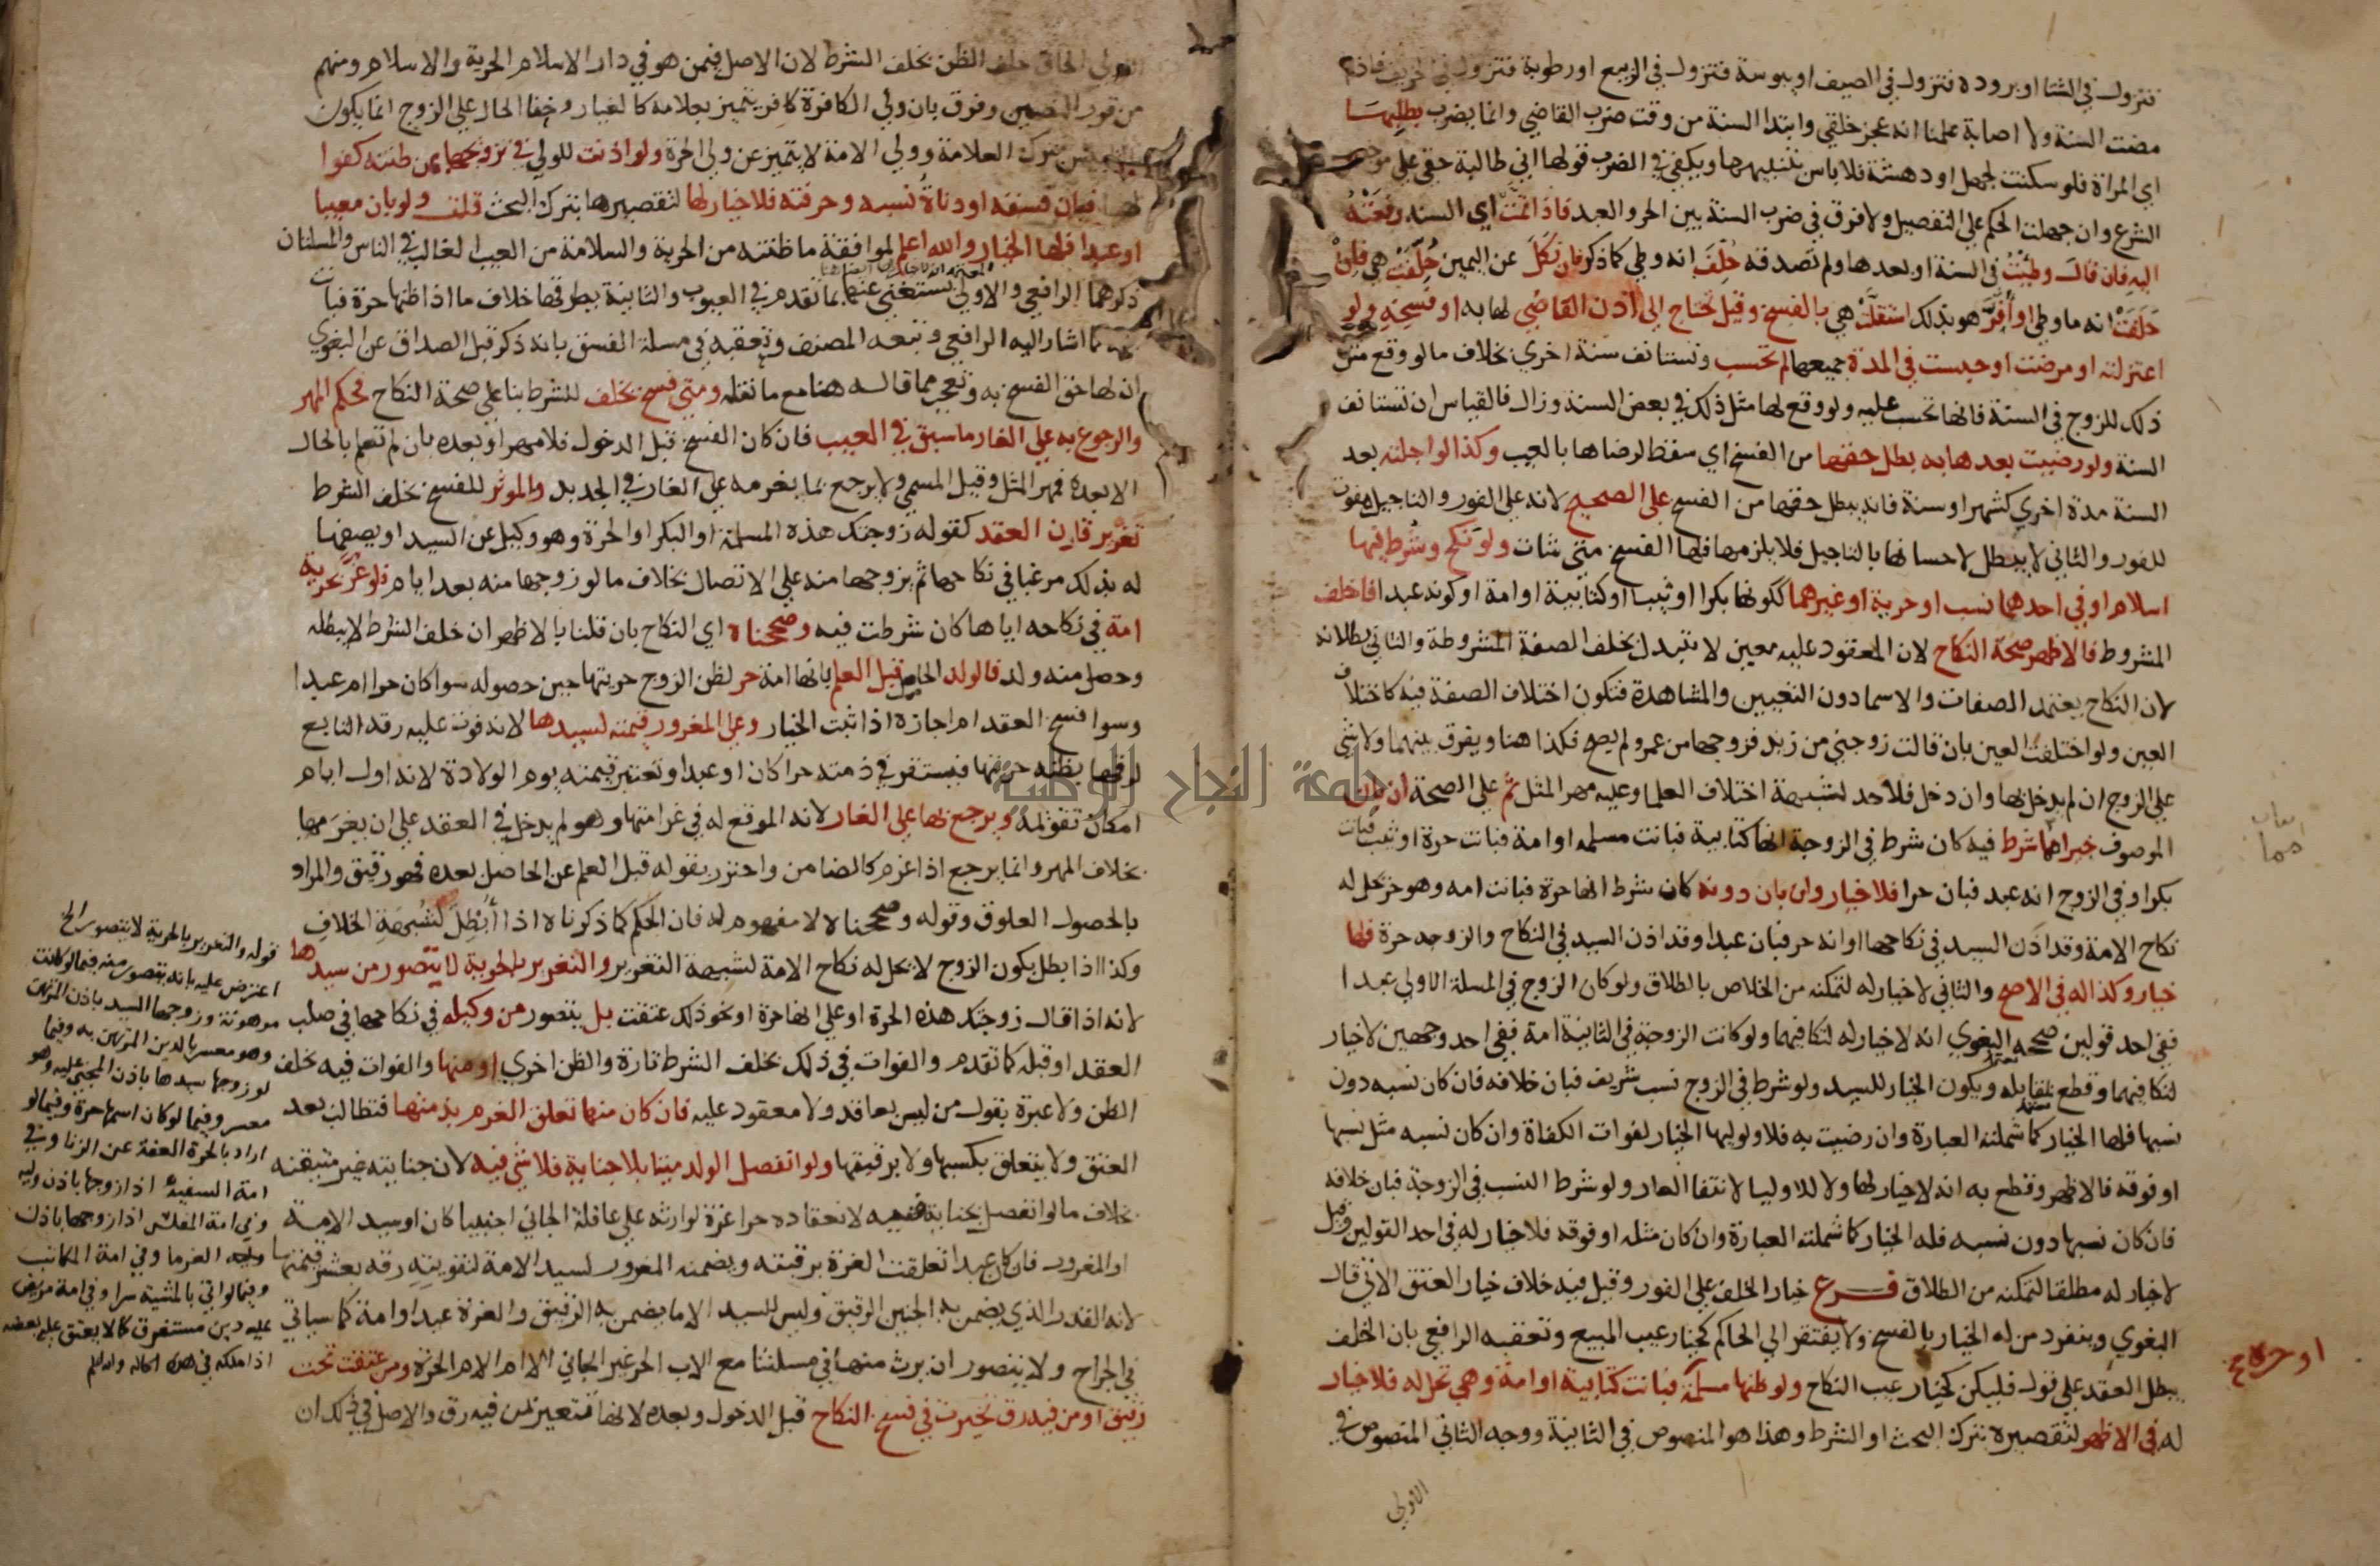 فتزول في الشتا او برودة فتزول في الصيف او يبوسة فتزول في الربيع او رطوبة فتزول في الخريف فاذا
مضت السنة ولا اصابة علمنا انه عجز خلقي وابتدا السنة من وقت ضرب القاضي وانما يضرب بطلبها
اي المراة فلو سكتت لجهل او دهشة فلا باس بتنبيهها ويكفي في الضرب قولها اني طالبة حقي على موجب
الشرع وان جهلت الحكم على التفصيل ولا فرق في ضرب السنة بين الحر والعبد فاذا تمت اي السنة رفعته
اليه فان قال وطئت في السنة او بعدها ولم تصدقه حلف انه وطي كما ذكر فان نكل عن اليمين حلفت هي فان
حلفت انه ما وطي او اقر هو بذلك استقلت هي بالفسخ وقيل تحتاج الى اذن القاضي لها به او فسخه ولو
اعتزلته او مرضت او حبست في المدة جميعها لم تحسب وتستانف سنة اخري بخلاف ما لو وقع مثل
ذلك للزوج في السنة فانها تحسب عليه ولو وقع لها مثل ذلك في بعض السنة وزال فالقياس ان تستانف
السنة ولو رضيت بعدها به بطل حقها من الفسخ اي سقط لرضاها بالعيب وكذا لو اجلته بعد
السنة مدة اخري كشهر او سنة فانه يبطل حقها من الفسخ على الصحيح لانه على الفور والتاجيل مفوت
للفور والثاني لا يبطل لاحسانها بالتاجيل فلا يلزمها فلها الفسخ متى شات ولو نكح وشرط فيها
اسلام او في احدهما نسب او حرية او غيرهما ككونها بكرا او ثيبا او كتابية او امة او كونه عبدا فاخلف
المشروط فالاظهر صحة النكاح لان المعقود عليه معين لا يتبدل بخلف الصفة المشروطة والثاني بطلانه
لان النكاح يعتمد الصفات والاسما دون التعيين والمشاهدة فتكون اختلاف الصفة فيه كاختلاف
العين ولو اختلفت العين بان قالت زوجني من زيد فزوجها من عمرو لم يصح فكذا هنا ويفرق بينهما ولا شي
على الزوج ان لم يدخل بها وان دخل فلا حد لشبهة اختلاف العلما وعليه مهر المثل ثم على الصحة ان بان
الموصوف خيرا مما شرط فيه كان شرط في الزوجة انها كتابية فبانت مسلمة او امة فبانت حرة او ثيب فبانت
بكرا او في الزوج انه عبد فبان حرا فلا خيار وان بان دونه كان شرط انها حرة فبانت امة وهو حر تحل له
نكاح الامة وقد اذن السيد في نكاحها او انه حر فبان عبدا وقد اذن السيد في النكاح والزوجة حرة فلها
خيار وكذا له في الاصح والثاني لا خيار له لتمكنه من الخلاص بالطلاق ولو كان الزوج في المسلة الاولى عبدا
ففي احد قولين صححه البغوي انه لا خيار له لتكافيهما ولو كانت الزوجة في الثانية امة ففي احد وجهين لا خيار
لتكافيهما وقطع بمقابله ويكون الخيار للسيد ولو شرط في الزوج نسب شريف فبان خلافه فان كان نسبه دون
نسبها فلها الخيار كما شملته العبارة وان رضيت به فلاوليايها الخيار لفوات الكفاة وان كان نسبه مثل نسبها
او فوقه فالاظهر وقطع به انه لا خيار لها ولا للاوليا لانتفا العار ولو شرط النسب في الزوجة فبان خلافه
فان كان نسبها دون نسبه فله الخيار كما شملته العبارة وان كان مثله او فوقه فلا خيار له في احد القولين وقيل
لا خيار له مطلقا لتمكنه من الطلاق فرع خيار الخلف على الفور وقيل فيه خلاف خيار العتق الاتي قال
البغوي وينفرد من له الخيار بالفسخ ولا يفتقر الى الحاكم كخيار عيب المبيع وتعقبه الرافعي بان الخلف
يبطل العقد على قول فليكن كخيار عيب النكاح ولو ظنها مسلمة فبانت كتابية او امة وهي تحل له فلا خيار
له في الاظهر لتقصيره بترك البحث او الشرط وهذا هو المنصوص في الثانية ووجه الثاني المنصوص في
الاولى
او حرة
الاولى الحاق خلف الظن بخلف الشرط لان الاصل فيمن هو في دار الاسلام الحرية والاسلام ومنهم
من قرر النصين وفرق بان ولي الكافرة كافر يتميز بعلامة كالغيار وخفا الحال على الزوج انما يكون
بترك العلامة وولي الامة لا يتميز عن ولي الحرة ولو اذنت للولي في تزويجها بمن ظنته كفوا
لها فبان فسقه او دناة نسبه وحرفته فلا خيار لها لتقصيرها بترك البحث قلت ولو بان معيبا
او عبدا فلها الخيار والله اعلم لموافقة ما ظنته من الحرية والسلامة من العيب الغالب في الناس والمسلتان
ذكرهما الرافعي والاولى يستغنى عنها بما تقدم في العيوب والثانية بطرقها خلاف ما اذا ظنها حرة فبانت
كما اشار اليه الرافعي وتبعه المصنف وتعقبه في مسلة الفسق بانه ذكر قبل الصداق عن البغوي
ان لها حق الفسخ به وتعجب مما قاله هنا مع ما نقله ومتى فسخ بخلف للشرط بنا على صحة النكاح فحكم المهر
والرجوع به على الغار ما سبق في العيب فان كان الفسخ قبل الدخول فلا مهر او بعده بان لم تعلم بالحال
الا بعده فمهر المثل وقيل المسمى ولا يرجع بما يغرمه على الغار في الجديد والموثر للفسخ بخلف الشرط
تغرير قارن العقد كقوله زوجتك هذه المسلمة او البكر او الحرة وهو وكيل عن السيد او يصفها
له بذلك مرغبا في نكاحها ثم يزوجها منه على الاتصال بخلاف ما لو زوجها منه بعد ايام فلو غر بحرية
امة في نكاحه اياها كان شرطت فيه وصححناه اي النكاح بان قلنا بالاظهر ان خلف الشرط لا يبطله
وحصل منه ولد فالولد الحاصل قبل العلم بانها امة حر لظن الزوج حريتها حين حصوله سوا كان حرا ام عبدا
وسوا فسخ العقد ام اجازه اذا ثبت الخيار وعلى المغرور قيمته لسيدها لانه فوت عليه رقه التابع
لرقها بظنه حريتها فيستقر في ذمته حرا كان او عبدا وتعتبر قيمته يوم الولادة لانه اول ايام
امكان تقويمه ويرجع بها على الغار لانه الموقع له في غرامتها وهو لم يدخل في العقد على ان يغرمها
بخلاف المهر وانما يرجع اذا غرم كالضامن واحترز بقوله قبل العلم عن الحاصل بعده فهو رقيق والمراد
بالحصول العلوق وقوله وصححناه لا مفهوم له فان الحكم كما ذكرناه اذا ابطل لشبهة الخلاف
وكذا اذا بطل بكون الزوج لا تحل له نكاح الامة لشبهة التغرير والتغرير بالحرية لا يتصور من سيدها
لانه اذا قال زوجتك هذه الحرة او على انها حرة او نحو ذلك عتقت بل يتصور من وكيله في نكاحها في صلب
العقد او قبله كما تقدم والفوات في ذلك بخلف الشرط تارة والظن اخري او منها والفوات فيه بخلف
الظن ولا عبرة بقول من ليس بعاقد ولا معقود عليه فان كان منها تعلق الغرم بذمتها فتطالب بعد
العتق ولا يتعلق بكسبها ولا برقبتها ولو انفصل الولد ميتا بلا جناية فلا شي فيه لان حياته غير متيقنة
بخلاف ما لو انفصل بجناية ففيه لانعقاده حرا غرة لوارثه على عاقلة الجاني اجنبيا كان او سيد الامة
او المغرور فان كان عبدا تعلقت الغرة برقبته ويضمنه المغرور لسيد الامة لتفويته رقه بعشر قيمتها
لانه القدر الذي يضمن به الجنين الرقيق وليس للسيد الا ما يضمن به الرقيق والغرة عبد او امة كما سياتي
في الجراح ولا يتصور ان يرث منها في مسلتنا مع الاب الحر غير الجاني الا ام الام الحرة ومن عتقت تحت
رقيق او من فيه رق تخيرت في فسخ النكاح قبل الدخول وبعده لانها تتعير بمن فيه رق والاصل في ذلك ان
قوله والتغرير بالحرية لا يتصور الخ
اعترض عليه بانه يتصور منه فيما لو كانت
مرهونة وزوجها السيد باذن المرتهن
وهو معسر بالدين المرتهن به وفيما
لو زوجها سيدها باذن المجني عليه وهو
معسر وفيما لو كان اسمها حرة وفيما لو
اراد بالحرة العفة عن الزنا وفي
امة السفيه اذا زوجها باذن وليه
وفي امة المفلس اذا زوجها باذن
الغرما وفي امة المكاتب
وفيما لو اتى بالمشية سرا وفي امة مريض
عليه دين مستغرق كما لا يعتق عليه بعضه
اذا ملكه في هذه الحالة والله اعلم
جامعة النجاح الوطنية